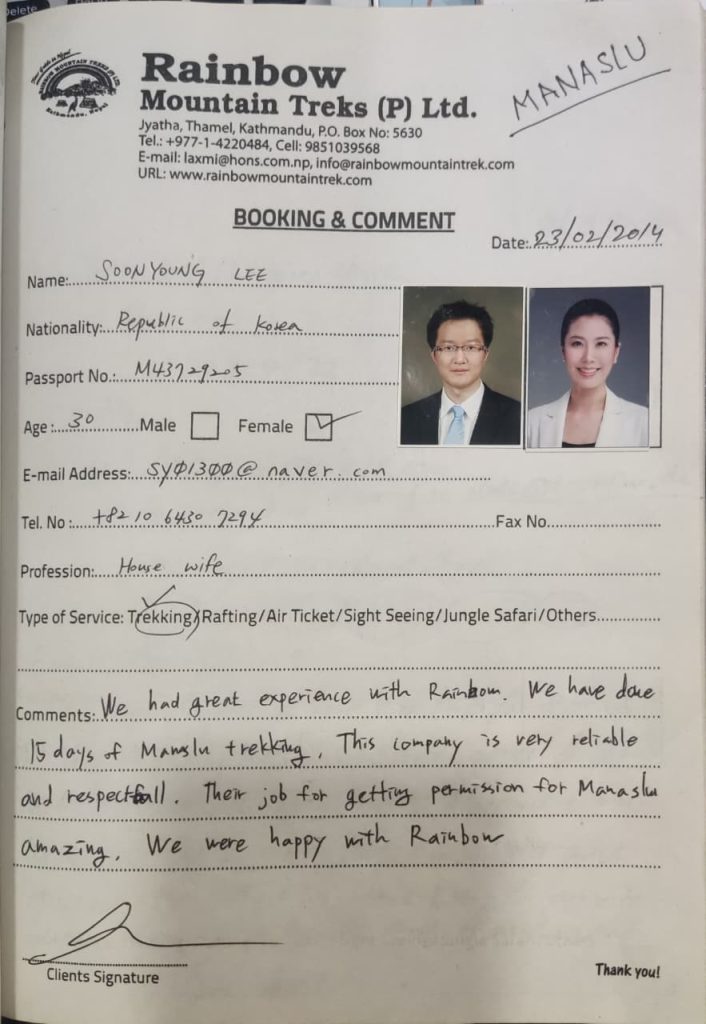 Delete
RAINBOW MOUNTAIN TREKS (P) LTD
Kathmandu, Nepal
Rainbow
Mountain Treks (P) Ltd.
MANASLU
Jyatha, Thamel, Kathmandu, P.O. Box No: 5630
Tel.: +977-1-4220484, Cell: 9851039568
E-mail: laxmi@hons.com.np, info@rainbowmountaintrek.com
URL: www.rainbowmountaintrek.com
BOOKING & COMMENT
Date: 23/02/2014
Name: SOONYOUNG LEE
Nationality: Republic of Korea
Passport No.: M43729205
Age : 30 Male Female
E-mail Address: sy01300@naver.com
Tel. No : +82 10 6430 7294 Fax No.
Profession: House wife
Type of Service: Trekking/Rafting/Air Ticket/Sight Seeing/Jungle Safari/Others
Comments: We had great experience with Rainbow. We have done
15 days of Manslu trekking, This company is very reliable
and respectfall. Their job for getting permission for Manaslu
amazing, We were happy with Rainbow
Clients Signature
Thank you!